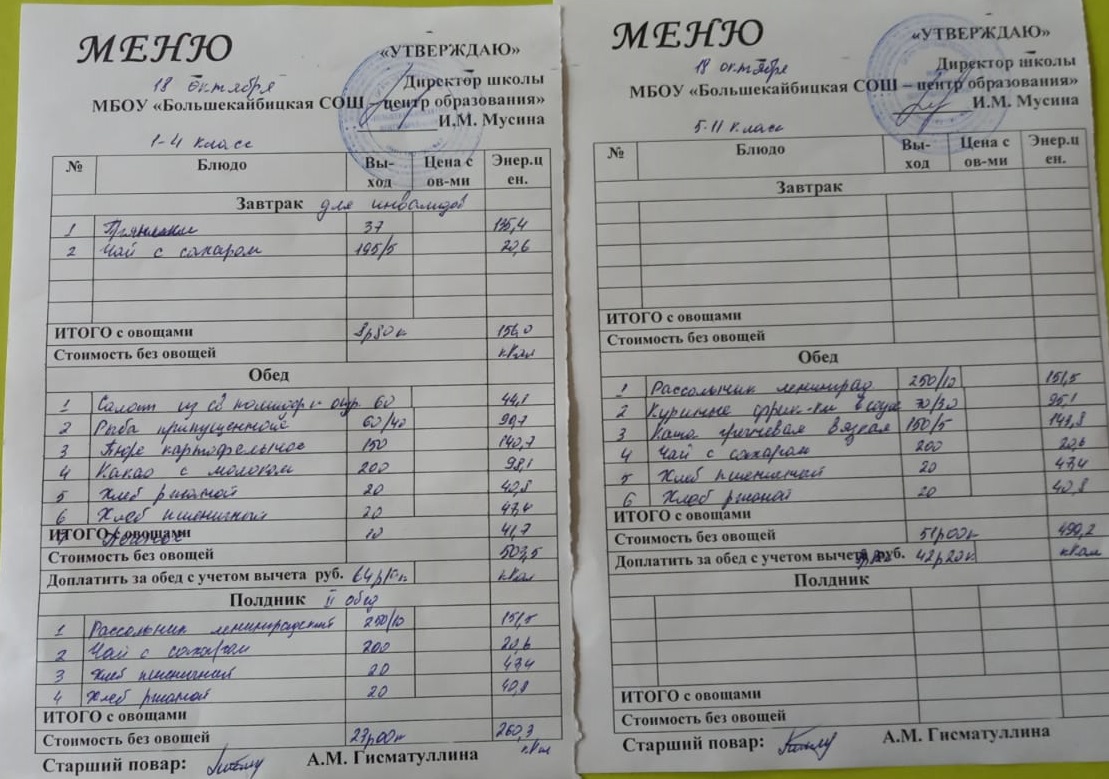 МЕНЮ
«УТВЕРЖДАЮ»
18 октября
Директор школы
МБОУ «Большекайбицкая СОШ – центр образования»
И.М. Мусина
1-4 класс
№ Блюдо Вы-ход Цена с ов-ми Энер.цен.
Завтрак для инвалидов
1 Пряники 37 135,4
2 Чай с сахаром 195/5 20,6
ИТОГО с овощами 8р80к 156,0
Стоимость без овощей кКал
Обед
1 Салат из св помидор 60 44,1
2 Рыба припущенная 60/40 90,7
3 Пюре картофельное 150 140,7
4 Какао с молоком 200 98,1
5 Хлеб ржаной 20 40,8
6 Хлеб пшеничный 20 47,4
7 10 41,7
ИТОГО с овощами
Стоимость без овощей 503,5
Доплатить за обед с учетом вычета руб. кКал
Полдник II обед
1 Рассольник ленинградский 250/10 151,5
2 Чай с сахаром 200 20,6
3 Хлеб пшеничный 20 47,4
4 Хлеб ржаной 20 40,8
ИТОГО с овощами
Стоимость без овощей 23р00к 260,3
кКал
Старший повар: А.М. Гисматуллина
МЕНЮ
«УТВЕРЖДАЮ»
18 октября
Директор школы
МБОУ «Большекайбицкая СОШ – центр образования»
И.М. Мусина
5-11 класс
№ Блюдо Вы-ход Цена с ов-ми Энер.цен.
Завтрак
ИТОГО с овощами
Стоимость без овощей
Обед
1 Рассольник ленинград 250/10 151,5
2 Куриные фрик-ки в соусе 70/30 95,1
3 Каша гречневая вязкая 150/5 143,8
4 Чай с сахаром 200 20,6
5 Хлеб пшеничный 20 47,4
6 Хлеб ржаной 20 40,8
ИТОГО с овощами
Стоимость без овощей 51р00к 499,2
Доплатить за обед с учетом вычета руб. 42р20к кКал
Полдник
ИТОГО с овощами
Стоимость без овощей
Старший повар: А.М. Гисматуллина